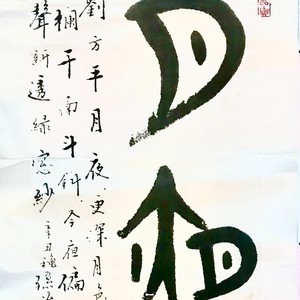 月夜
劉方平月夜更深月色
欄干南斗斜今夜偏
聲新透綠窓紗辛丑